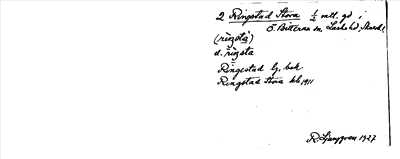 2 Ringstad Stora 1/2 mtl. gd i
Ö. Bitterna sn, Laske hd, Skarab.
(rìŋsta)
d. rìŋsta
Ringestad lj. bok
Ringstad Stora kb 1911
R. Ljunggren 1927